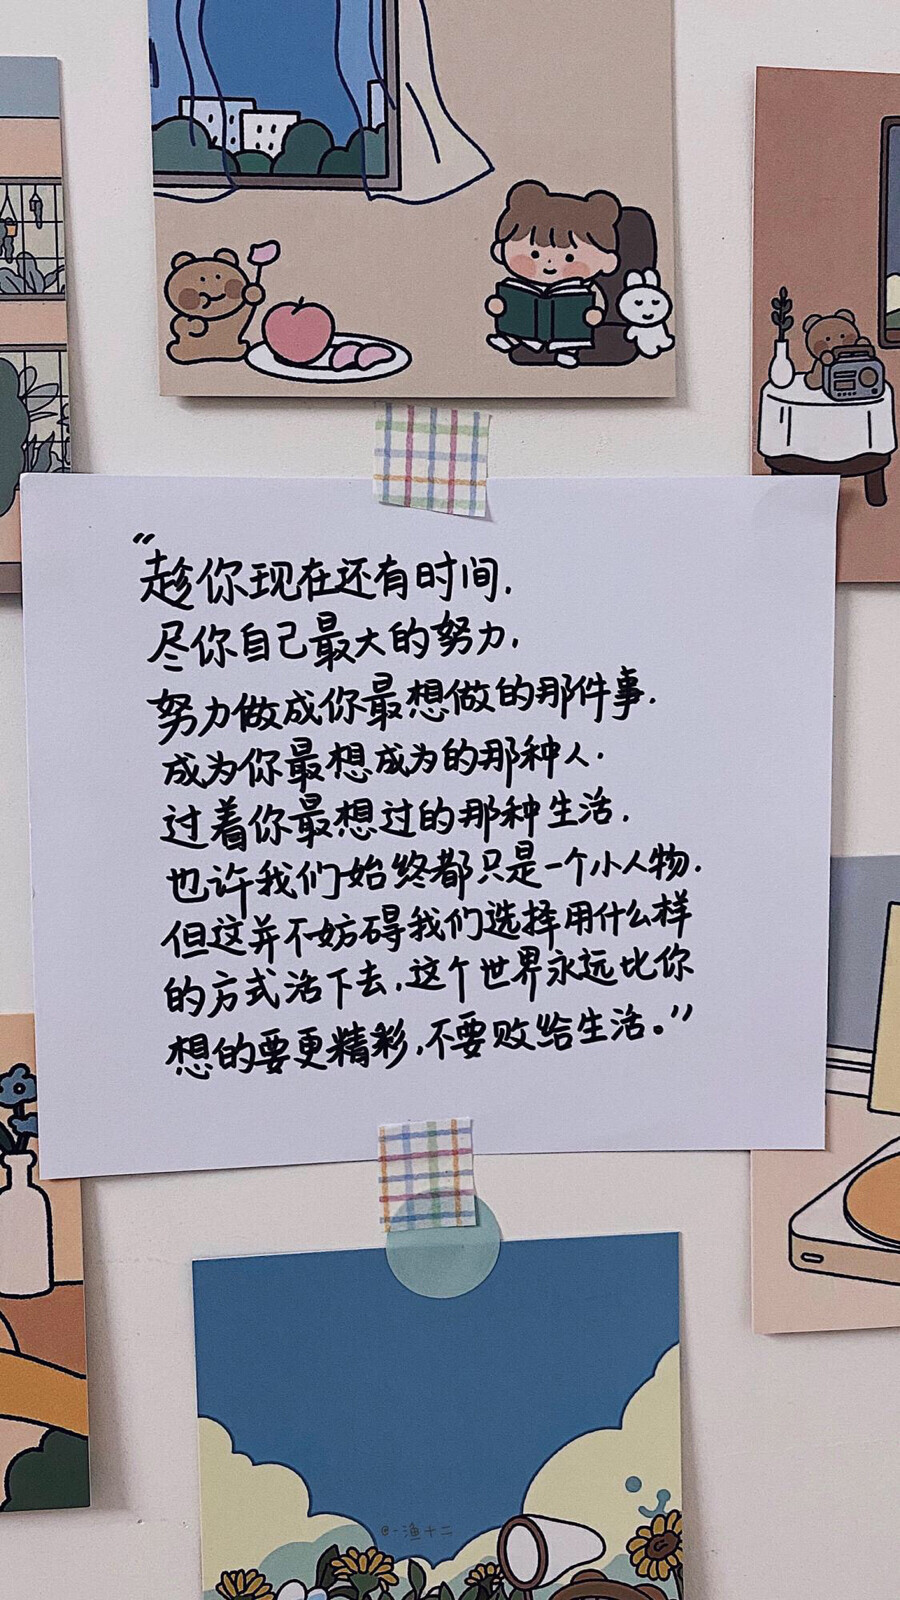 “趁你现在还有时间,
尽你自己最大的努力,
努力做成你最想做的那件事,
成为你最想成为的那种人,
过着你最想过的那种生活,
也许我们始终都只是一个小人物,
但这并不妨碍我们选择用什么样
的方式活下去,这个世界永远比你
想的要更精彩,不要败给生活。”
@一渔十二